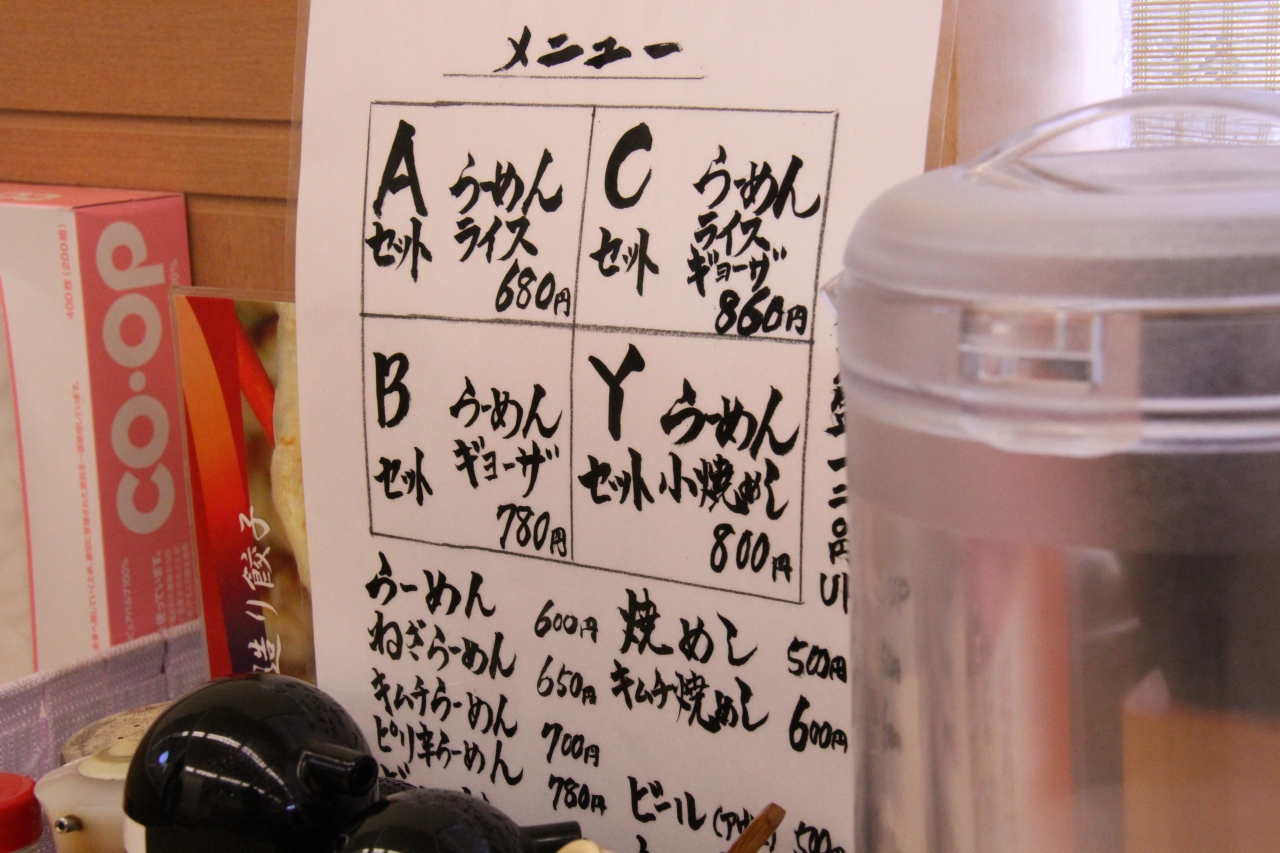 メニュー
A
セット
らーめん
ライス
680円
C
セット
らーめん
ライス
ギョーザ
860円
B
セット
らーめん
ギョーザ
780円
Y
セット
らーめん
小焼めし
800円
らーめん 600円
ねぎらーめん 650円
キムチらーめん 700円
ピリ辛らーめん 780円
焼めし 500円
キムチ焼めし 600円
ビール 500
CO・OP
400枚(200組)
造り餃子